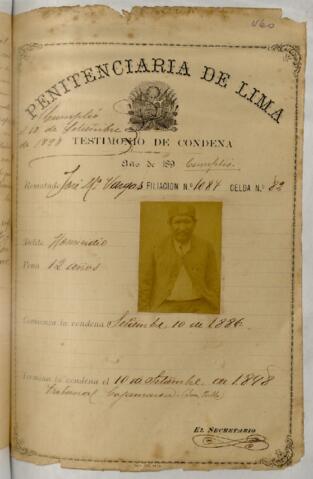 V60
PENITENCIARIA DE LIMA
Cumplió
el 10 de Setiembre
de 1898
TESTIMONIO DE CONDENA
Año de 189 Cumplió.
Rematado José Mª Vargas FILIACION N.º 1084 CELDA N.º 82
Delito Homicidio
Pena 12 años
Comienza la condena Setiembre 10 de 1886.
Termina la condena el 10 de Setiembre de 1898
Tribunal Cajamarca
EL SECRETARIO